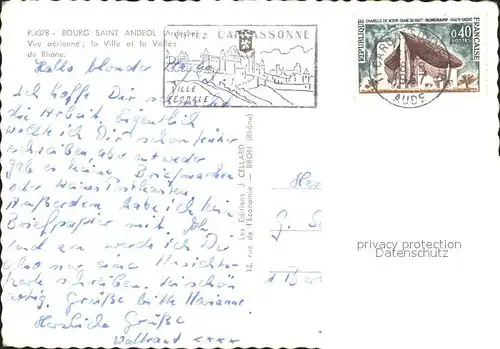 R.4378 - BOURG SAINT ANDEOL (Ardèche)
Vue aérienne, la Ville et la Vallée
du Rhône.
VISITEZ CARCASSONNE
VILLE
FÉODALE
CHAPELLE DE NOTRE-DAME DU HAUT - RONCHAMP - HAUTE-SAÔNE
REPUBLIQUE FRANÇAISE
0,40
POSTES
CARCASSONNE
AUDE
Hallo blonder
Ich hoffe Dir schmeckt
die Arbeit. Eigentlich
wollte ich Dir schon früher
schreiben aber entweder
gab es keine Briefmarken
oder keine Postkarten
Außerdem habe ich kein
Briefpapier mit. Ich
werde ich Dir
also nur eine Ansichts-
karte schreiben. Sei schön
artig. Grüße bitte Marianne
Herzliche Grüße
Waltraut ****
Les Editions J. CELLARD
12, rue de l'Economie — BRON (Rhône)
Her
G. S
privacy protection
Datenschutz